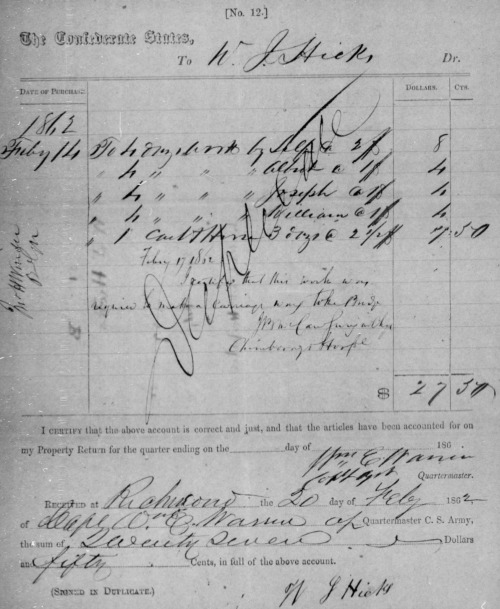 [No. 12.]
The Confederate States,
To W. J. Hicks Dr.
DATE OF PURCHASE. DOLLARS. CTS.
1862
Feby 14 To 4 Days work by @ 2$ 8
" 4 " " " Albert @ 1$ 4
" 4 " " " Joseph @ 1$ 4
" 4 " " " William @ 1$ 4
" 1 Cart & Horse 3 Days @ 2 1/2$ 7.50
Feby 17 1862
I certify that this work was
required to make a Carriage way to the
Chimborazo Hospl
Duplicate
$ 27 50
I CERTIFY that the above account is correct and just, and that the articles have been accounted for on
my Property Return for the quarter ending on the day of 186
Wm E. Warren
Capt Quartermaster.
RECEIVED at Richmond the 20 day of Feby 1862
of Capt Wm E. Warren Quartermaster C. S. Army,
the sum of Twenty Seven Dollars
and fifty Cents, in full of the above account.
(SIGNED IN DUPLICATE.) W J Hicks